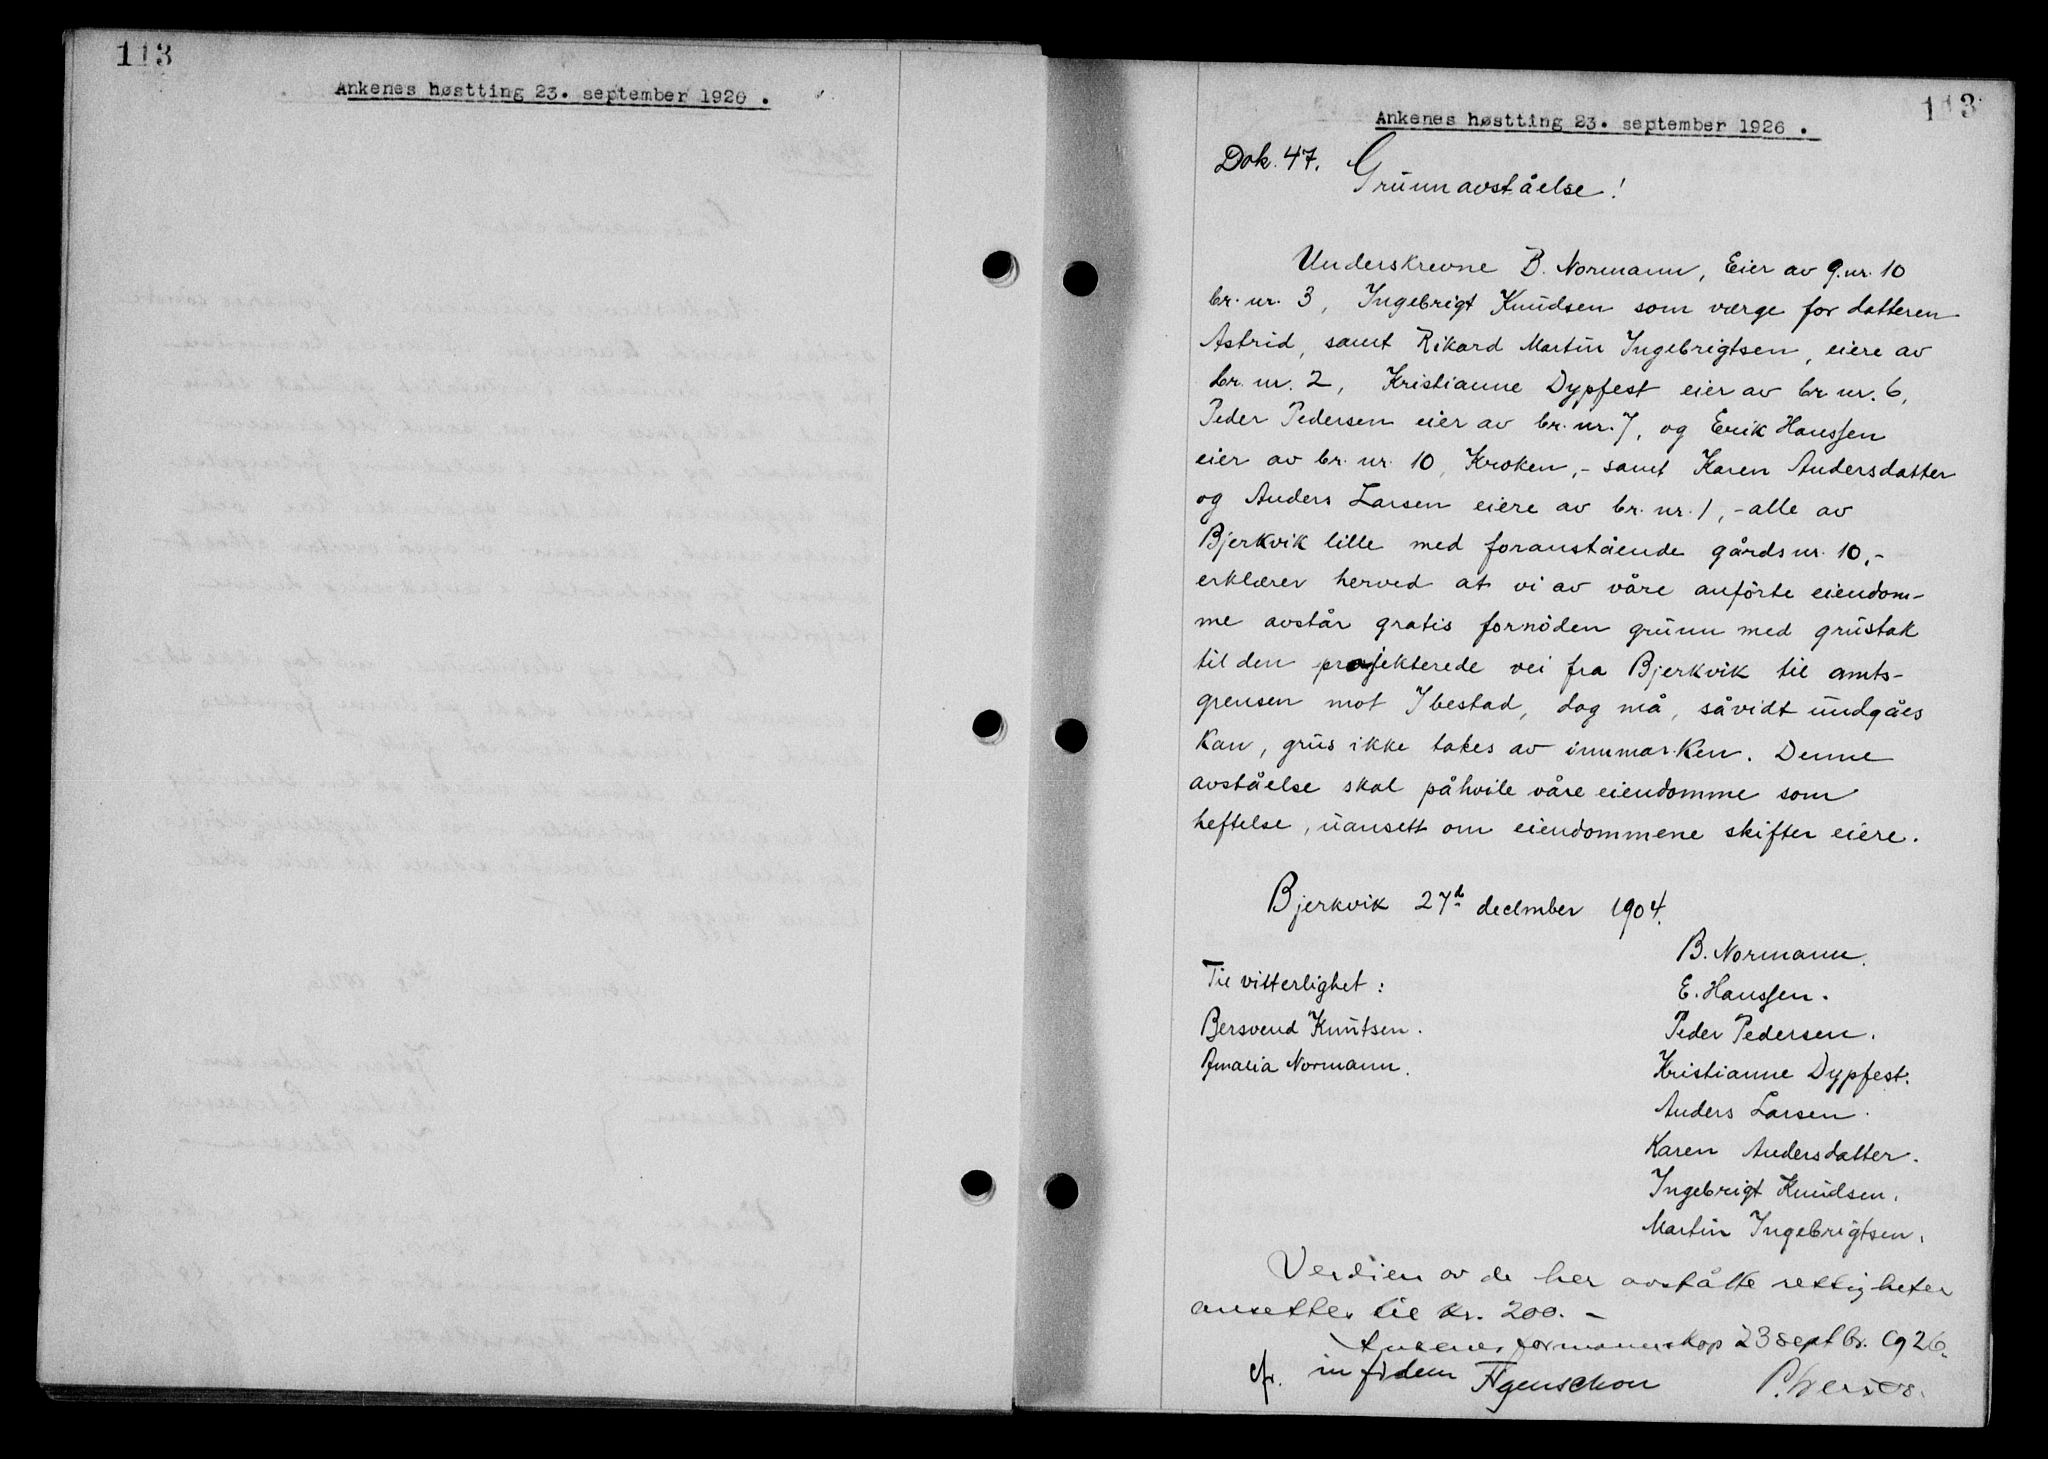 113
Ankenes høstting 23. september 1926.
113
Ankenes høstting 23. september 1926.
Dok. 47. Grunnavståelse!
Underskrevne B. Normann, Eier av g.nr. 10
br. nr. 3, Ingebrigt Knudsen som værge for datteren
Astrid, samt Rikard Martin Ingebrigtsen, eiere av
br. nr. 2, Kristianne Dypfest eier av br nr. 6,
Peder Pedersen eier av br. nr. 7, og Erik Hanssen
eier av br. nr. 10, Kroken,- samt Karen Andersdatter
og Anders Larsen eiere av br. nr. 1,- alle av
Bjerkvik lille med foranstående gårdsnr. 10,-
erklærer herved at vi av våre anførte eiendom-
me avstår gratis fornøden grunn med grustak
til den projekterede vei fra Bjerkvik til amts-
grensen mot Ibestad, dog må, såvidt undgåes
kan, grus ikke takes av innmarken. Denne
avståelse skal påhvile våre eiendomme som
heftelse, uansett om eiendommene skifter eiere.
Bjerkvik 27d december 1904.
B. Normann.
Til vitterlighet:
E. Hanssen.
Bersvend Knutsen.
Peder Pedersen.
Amalia Normann.
Kristianne Dypfest.
Anders Larsen.
Karen Andersdatter.
Ingebrigt Knudsen.
Martin Ingebrigtsen.
Verdien av de her avståtte rettigheter
ansettes til kr. 200.-
Ankenes formannskap 23 septbr. 1926.
cfr. in fidem Fagenschou